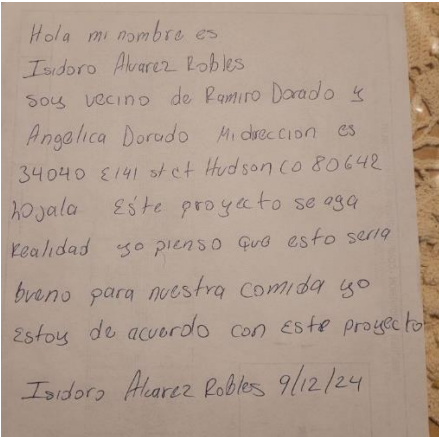 Hola mi nombre es
Isidoro Alvarez Robles
soy vecino de Ramiro Dorado y
Angelica Dorado Mi direccion es
34040 E 141 st ct Hudson CO 80642
hojala Este proyecto se aga
Realidad yo pienso que esto seria
bueno para nuestra comida yo
Estoy de acuerdo con este proyecto
Isidoro Alvarez Robles 9/12/24